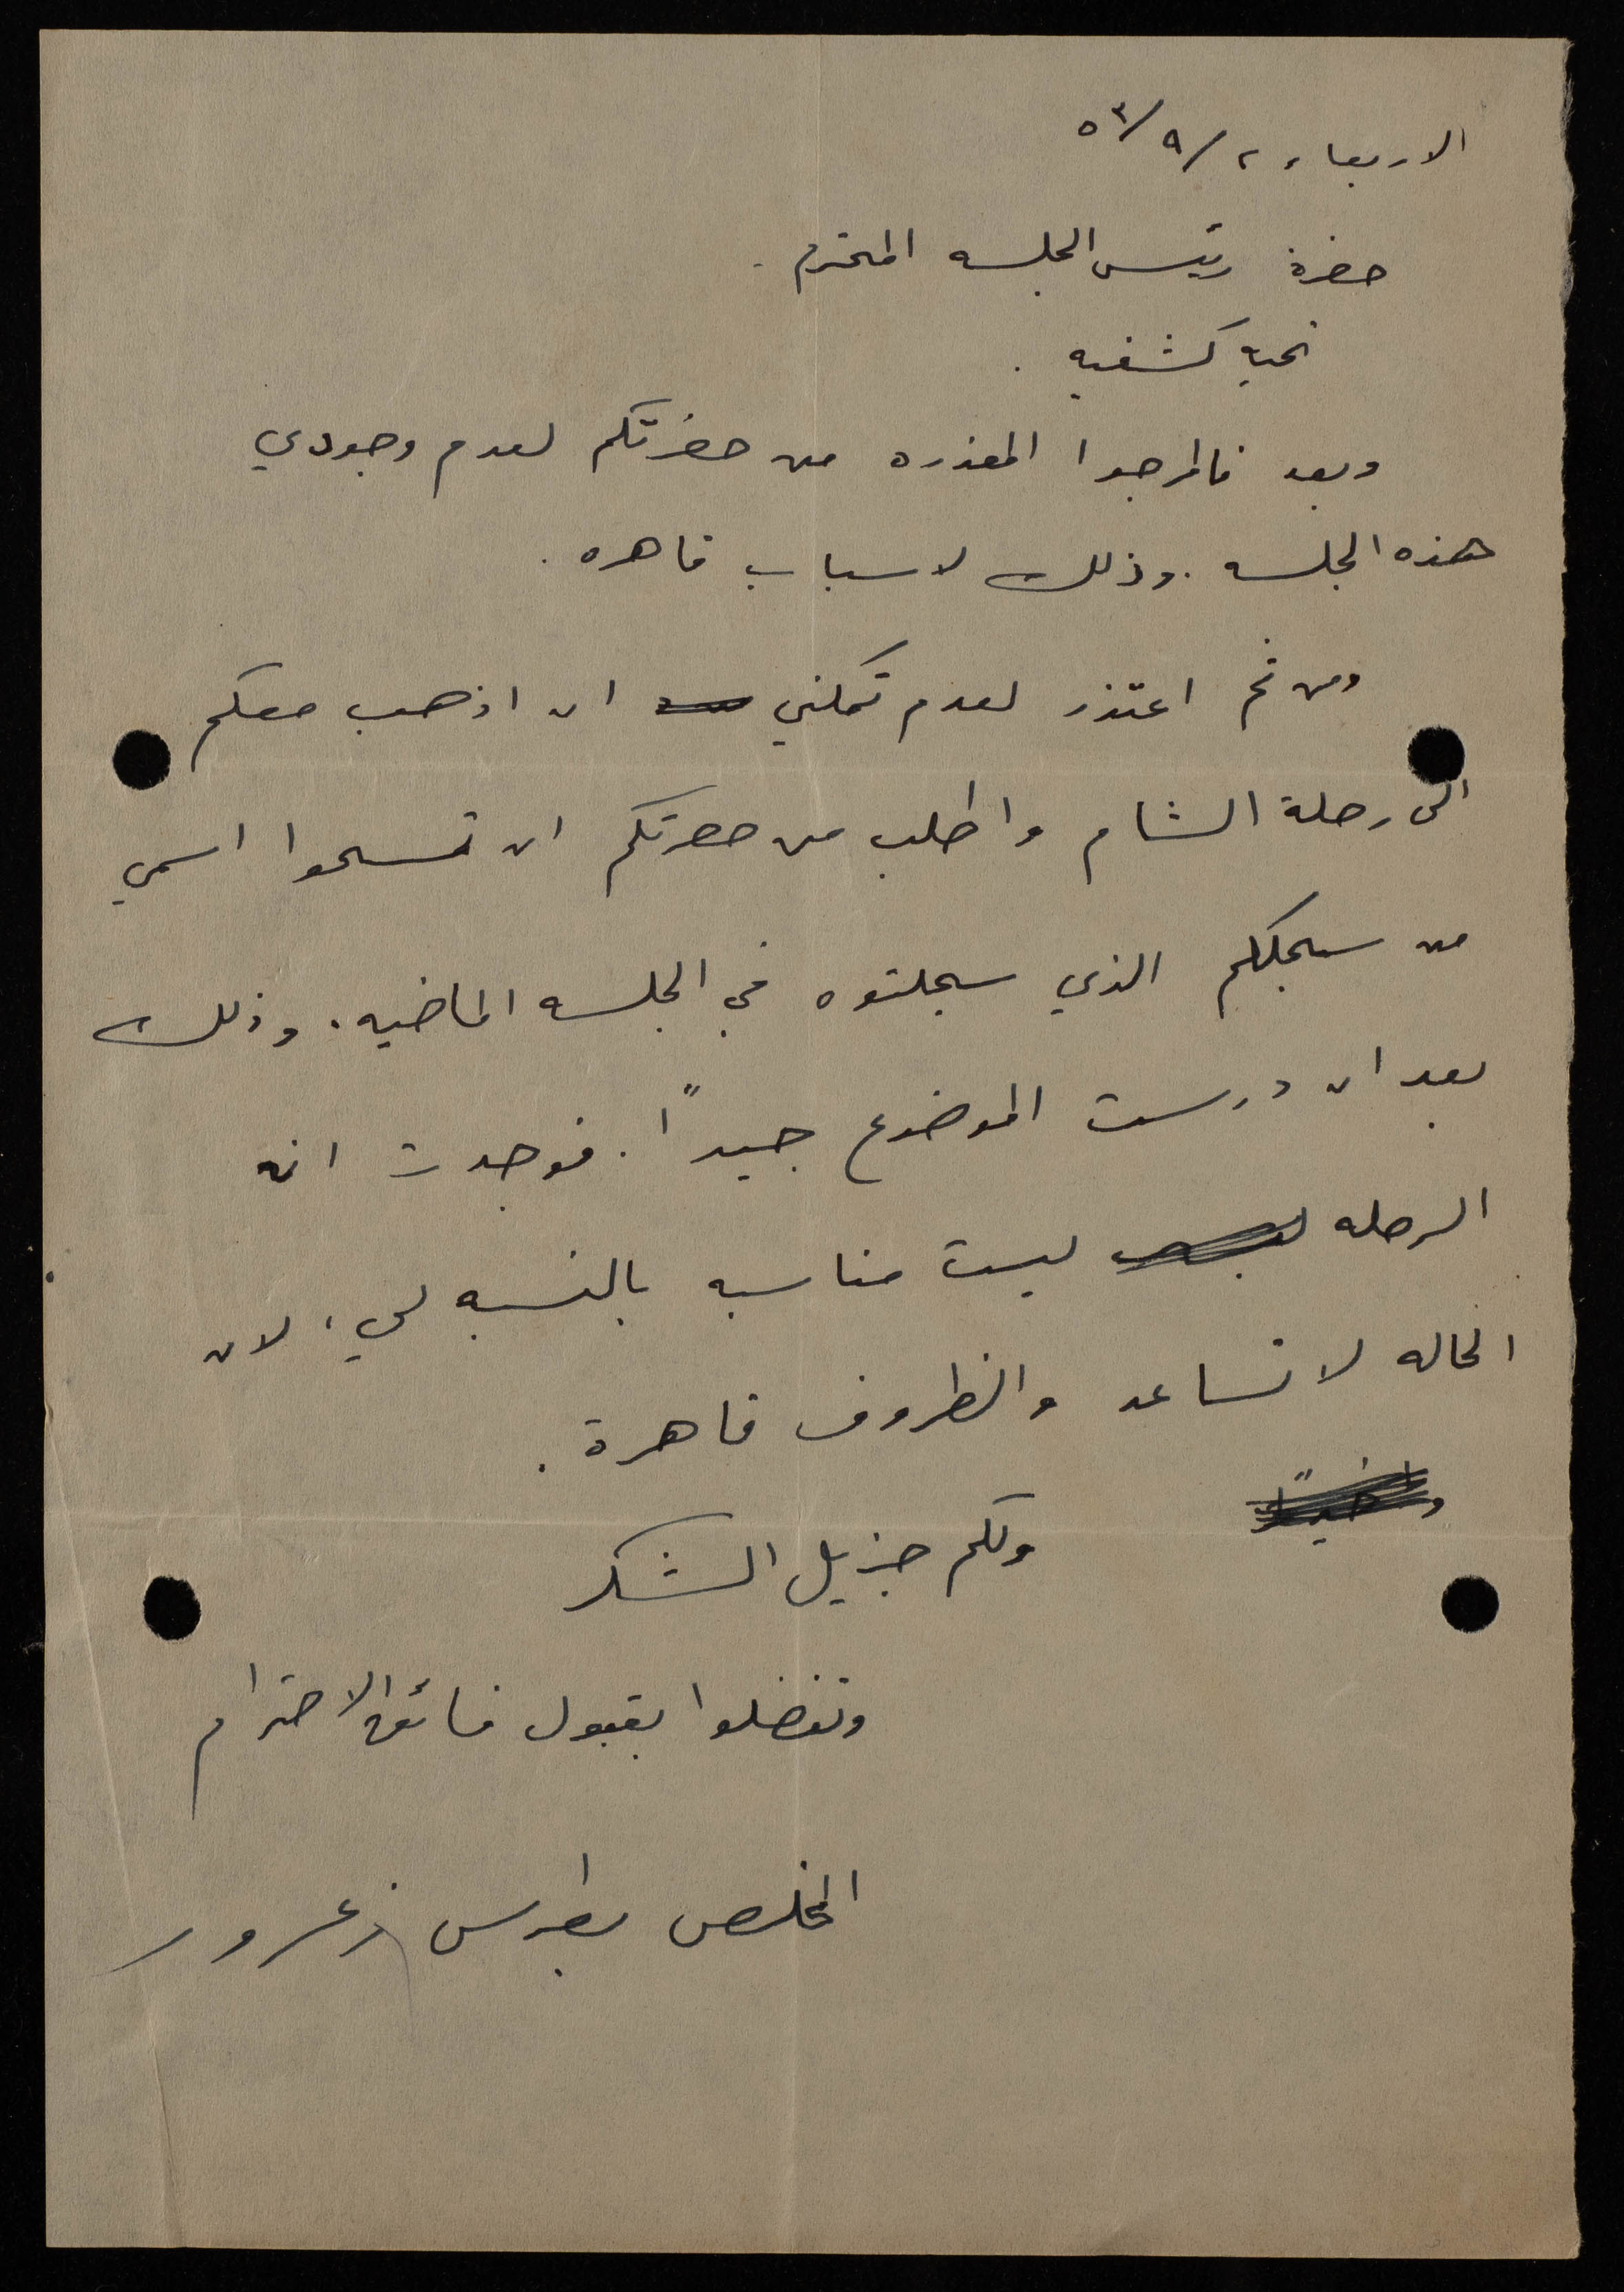 الاربعاء ٢/٩/٥٣
حضرة رئيس الجلسه المحترم.
تحية كشفيه.
وبعد فالمرجوا المعذره من حضرتكم لعدم وجودي
هذه الجلسه. وذلك لاسباب قاهره.
ومن ثم اعتذر لعدم تمكني ان اذهب معكم
الى رحلة الشام واطلب من حضرتكم ان تمسحوا اسمي
من سجلكم الذي سجلتوه في الجلسه الماضيه. وذلك
بعد ان درست الموضوع جيداً. فوجدت انه
الرحله ليست مناسبه بالنسبه لي، لان
الحاله لا تساعد والظروف قاهرة.
واخيراً
ولكم جزيل الشكر
وتفضلوا بقبول فائق الاحترام
المخلص بطرس زعرور